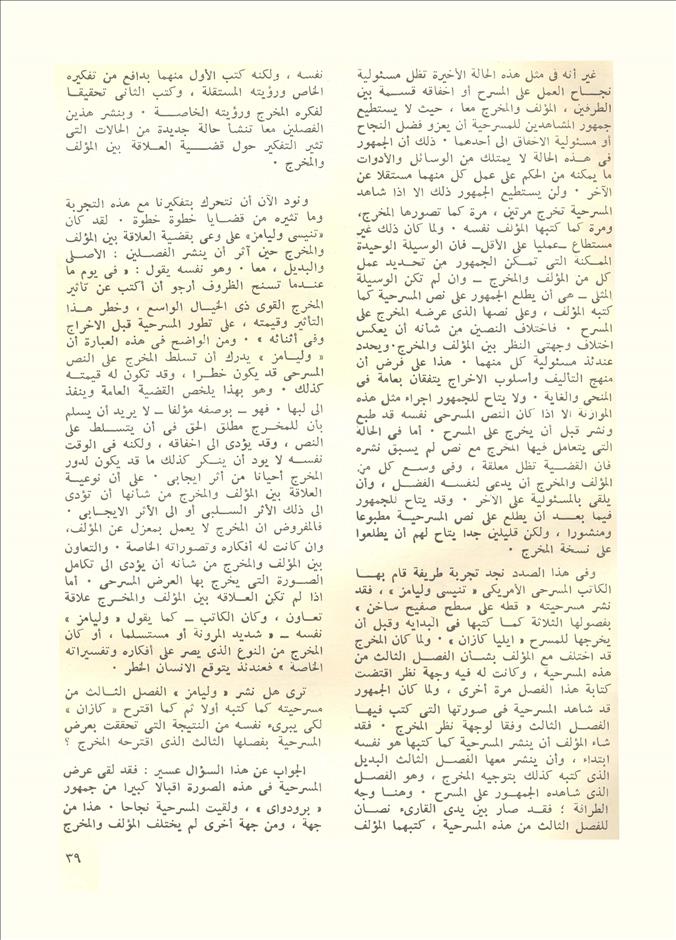 غير أنه فى مثل هذه الحالة الأخيرة تظل مسئولية
نجاح العمل على المسرح أو اخفاقه قسمة بين
الطرفين ، المؤلف والمخرج معا ، حيث لا يستطيع
جمهور المشاهدين للمسرحية أن يعزو فضل النجاح
أو مسئولية الاخفاق الى أحدهما . ذلك أن الجمهور
فى هذه الحالة لا يمتلك من الوسائل والأدوات
ما يمكنه من الحكم على عمل كل منهما مستقلا عن
الآخر . ولن يستطيع الجمهور ذلك الا اذا شاهد
المسرحية تخرج مرتين ، مرة كما تصورها المخرج،
ومرة كما كتبها المؤلف نفسه . ولما كان ذلك غير
مستطاع ــ عمليا على الأقل ــ فان الوسيلة الوحيدة
الممكنة التى تمكن الجمهور من تحديد عمل
كل من المؤلف والمخرج ــ وان لم تكن الوسيلة
المثلى ــ هى أن يطلع الجمهور على نص المسرحية كما
كتبه المؤلف ، وعلى نصها الذى عرضه المخرج على
المسرح . فاختلاف النصين من شأنه أن يعكس
اختلاف وجهتى النظر بين المؤلف والمخرج، ويحدد
عندئذ مسئولية كل منهما . هذا على فرض أن
منهج التأليف وأسلوب الاخراج يتفقان بعامة فى
المنحى والغاية . ولا يتاح للجمهور اجراء مثل هذه
الموازنة الا اذا كان النص المسرحى نفسه قد طبع
ونشر قبل أن يخرج على المسرح . أما فى الحالة
التى يتعامل فيها المخرج مع نص لم يسبق نشره
فان القضية تظل معلقة ، وفى وسع كل من
المؤلف والمخرج أن يدعى لنفسه الفضل ، وأن
يلقى بالمسئولية على الآخر . وقد يتاح للجمهور
فيما بعد أن يطلع على نص المسرحية مطبوعا
ومنشورا ، ولكن قليلين جدا يتاح لهم أن يطلعوا
على نسخة المخرج .
وفى هذا الصدد نجد تجربة طريفة قام بها
الكاتب المسرحى الأمريكى « تنيسى وليامز » ، فقد
نشر مسرحيته « قطة على سطح صفيح ساخن »
بفصولها الثلاثة كما كتبها فى البداية وقبل أن
يخرجها للمسرح « ايليا كازان » . ولما كان المخرج
قد اختلف مع المؤلف بشأن الفصل الثالث من
هذه المسرحية ، وكانت له فيه وجهة نظر اقتضت
كتابة هذا الفصل مرة أخرى ، ولما كان الجمهور
قد شاهد المسرحية فى صورتها التى كتب فيها
الفصل الثالث وفقا لوجهة نظر المخرج . فقد
شاء المؤلف أن ينشر المسرحية كما كتبها هو نفسه
ابتداء ، وأن ينشر معها الفصل الثالث البديل
الذى كتبه كذلك بتوجيه المخرج ، وهو الفصل
الذى شاهده الجمهور على المسرح . وهنا وجه
الطرافة ؛ فقد صار بين يدى القارىء نصان
للفصل الثالث من هذه المسرحية ، كتبهما المؤلف
نفسه ، ولكنه كتب الأول منهما بدافع من تفكيره
الخاص ورؤيته المستقلة ، وكتب الثانى تحقيقا
لفكره المخرج ورؤيته الخاصة . وبنشر هذين
الفصلين معا تنشأ حالة جديدة من الحالات التى
تثير التفكير حول قضية العلاقة بين المؤلف
والمخرج .
ونود الآن أن نتحرك بتفكيرنا مع هذه التجربة
وما تثيره من قضايا خطوة خطوة . لقد كان
«تنيسى وليامز» على وعى بقضية العلاقة بين المؤلف
والمخرج حين آثر أن ينشر الفصلين : الأصلى
والبديل ، معا . وهو نفسه يقول : « فى يوم ما
عندما تسنح الظروف أرجو أن أكتب عن تأثير
المخرج القوى ذى الخيال الواسع ، وخطر هذا
التأثير وقيمته ، على تطور المسرحية قبل الاخراج
وفى أثنائه » . ومن الواضح فى هذه العبارة أن
« وليامز » يدرك أن تسلط المخرج على النص
المسرحى قد يكون خطرا ، وقد تكون له قيمته
كذلك . وهو بهذا يلخص القضية العامة وينفذ
الى لبها . فهو ــ بوصفه مؤلفا ــ لا يريد أن يسلم
بأن للمخرج مطلق الحق فى أن يتسلط على
النص ، وقد يؤدى الى اخفاقه ، ولكنه فى الوقت
نفسه لا يود أن ينكر كذلك ما قد يكون لدور
المخرج أحيانا من أثر ايجابى . على أن نوعية
العلاقة بين المؤلف والمخرج من شأنها أن تؤدى
الى ذلك الأثر السلبى أو الى الأثر الايجابى .
فالمفروض ان المخرج لا يعمل بمعزل عن المؤلف،
وان كانت له أفكاره وتصوراته الخاصة . والتعاون
بين المؤلف والمخرج من شأنه أن يؤدى الى تكامل
الصورة التى يخرج بها العرض المسرحى . أما
اذا لم تكن العلاقة بين المؤلف والمخرج علاقة
تعاون ، وكان الكاتب ــ كما يقول « وليامز »
نفسه ــ « شديد المرونة أو مستسلما ، أو كان
المخرج من النوع الذى يصر على أفكاره وتفسيراته
الخاصة » فعندئذ يتوقع الانسان الخطر .
ترى هل نشر « وليامز » الفصل الثالث من
مسرحيته كما كتبه أولا ثم كما اقترح « كازان »
لكى يبرىء نفسه من النتيجة التى تحققت بعرض
المسرحية بفصلها الثالث الذى اقترحه المخرج ؟
الجواب عن هذا السؤال عسير : فقد لقى عرض
المسرحية فى هذه الصورة اقبالا كبيرا من جمهور
« برودواى » ، ولقيت المسرحية نجاحا . هذا من
جهة ، ومن جهة أخرى لم يختلف المؤلف والمخرج
٣٩